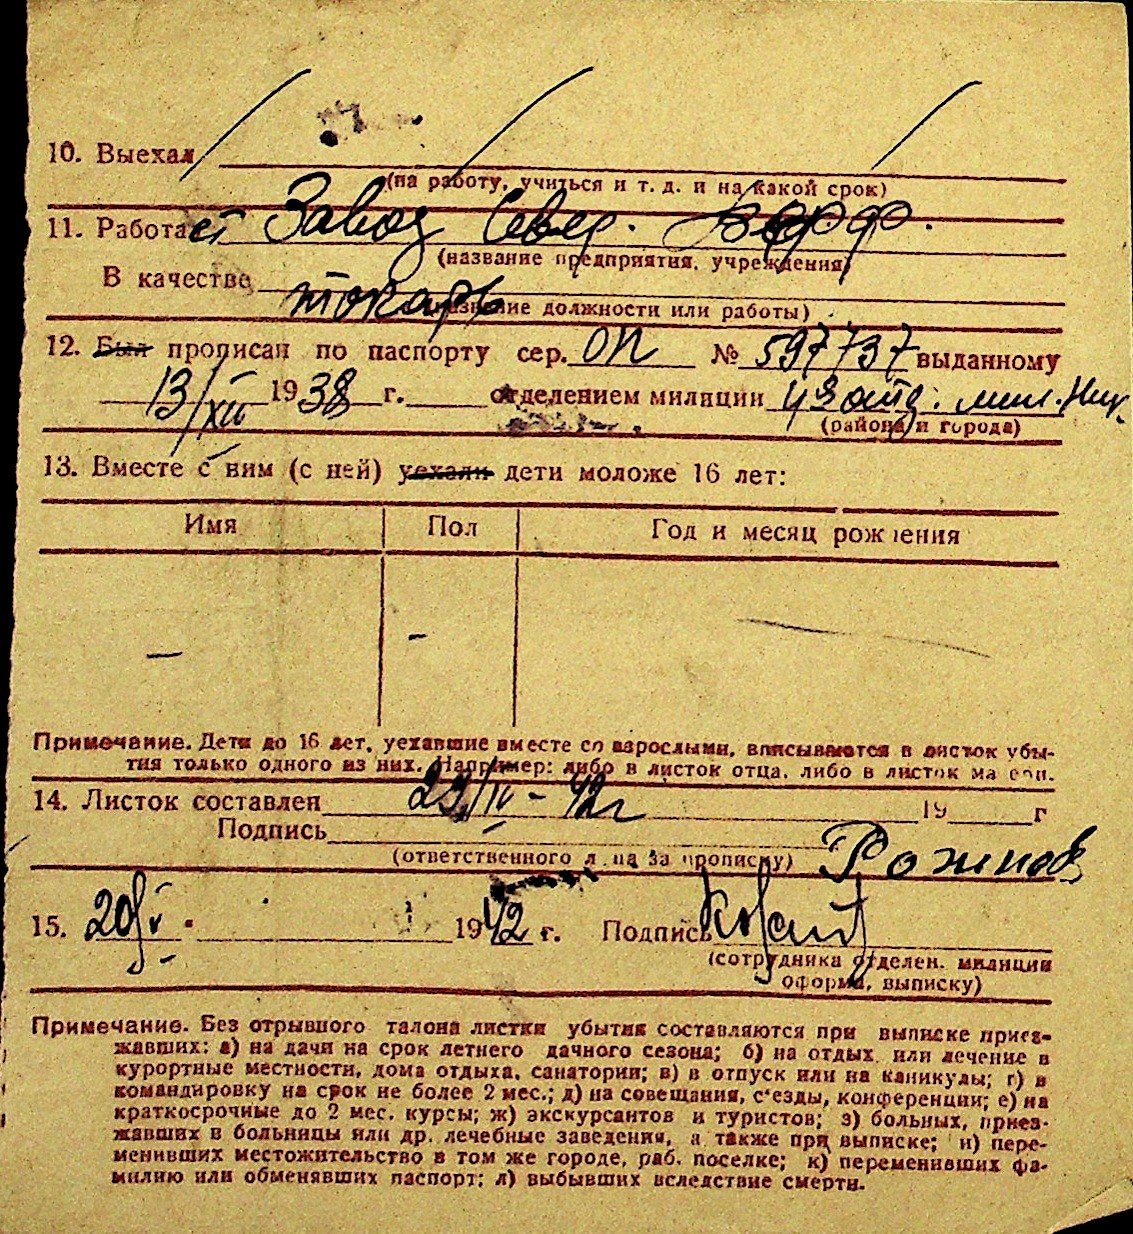 10. Выехал
(на работу, учиться и т. д. и на какой срок)
11. Работает Завод Север.
(название предприятия, учреждения)
В качестве токарь
(название должности или работы)
12. Был прописан по паспорту сер. ОП № 597737 выданному
13/XII 1938 г. отделением милиции 43 отд. мил.
(района и города)
13. Вместе с ним (с ней) уехали дети моложе 16 лет:
Имя Пол Год и месяц рождения
— - —
Примечание. Дети до 16 лет, уехавшие вместе со взрослыми, вписываются в листок убы-
тия только одного из них. Например: либо в листок отца, либо в листок матери.
14. Листок составлен 29/IV - 42 г 19 г
Подпись
(ответственного лица за прописку)
15. 20/V 1942 г. Подпись
(сотрудника отделен. милиции
оформ. выписку)
Примечание. Без отрывного талона листки убытия составляются при выписке приез-
жавших: а) на дачи на срок летнего дачного сезона; б) на отдых или лечение в
курортные местности, дома отдыха, санатории; в) в отпуск или на каникулы; г) в
командировку на срок не более 2 мес.; д) на совещания, с'езды, конференции; е) на
краткосрочные до 2 мес. курсы; ж) экскурсантов и туристов; з) больных, приез-
жавших в больницы или др. лечебные заведения, а также при выписке; и) пере-
менивших местожительство в том же городе, раб. поселке; к) переменивших фа-
милию или обменявших паспорт; л) выбывших вследствие смерти.